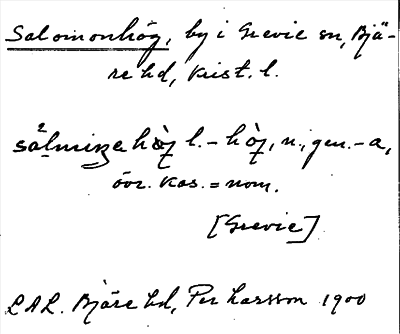 Salomonhög, by i Grevie sn, Bjä-
re hd, Krist. l.
sålmize hög l. - hög, n, gen. - a,
övr. kas. = nom.
[Grevie]
LAL. Bjäre hd, Per Larsson 1900